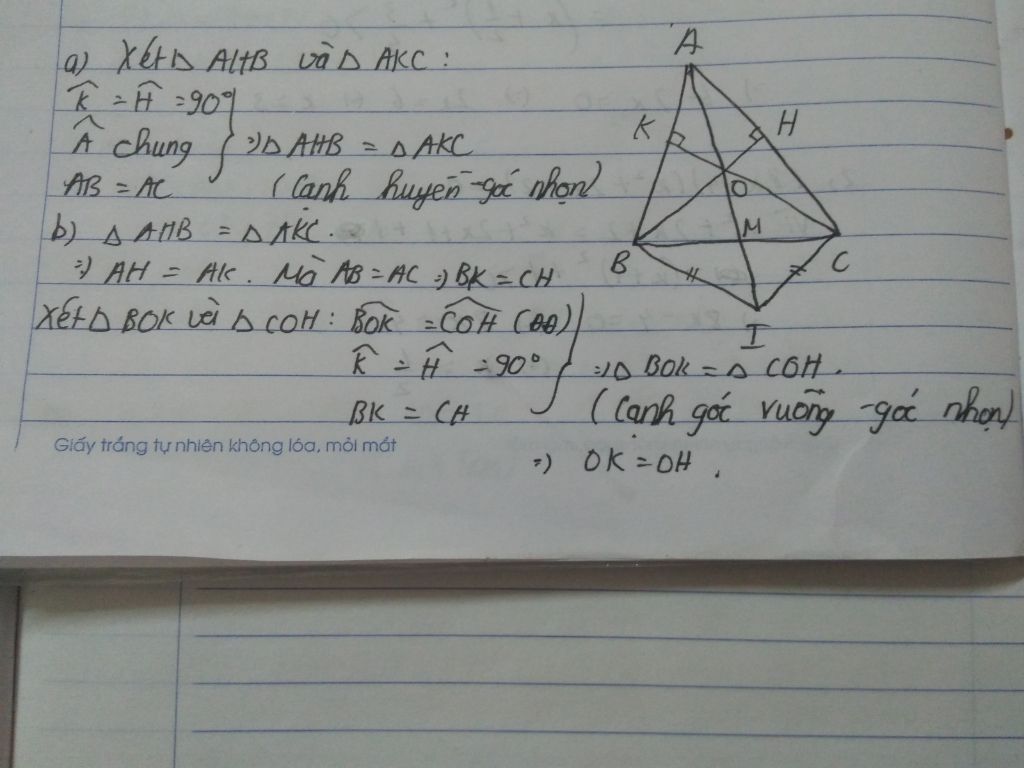 a) Xét Δ AHB và Δ AKC :
K̂ = Ĥ = 90°
 chung
AB = AC
⇒ Δ AHB = Δ AKC
(Cạnh huyền - góc nhọn)
b) Δ AHB = Δ AKC.
⇒ AH = AK. Mà AB = AC ⇒ BK = CH
Xét Δ BOK và Δ COH : BOK = COH (đđ)
K̂ = Ĥ = 90°
BK = CH
⇒ Δ BOK = Δ COH.
(Cạnh góc vuông - góc nhọn)
⇒ OK = OH.
A
K
H
O
M
B
C
I
Giấy trắng tự nhiên không lóa, mỏi mắt